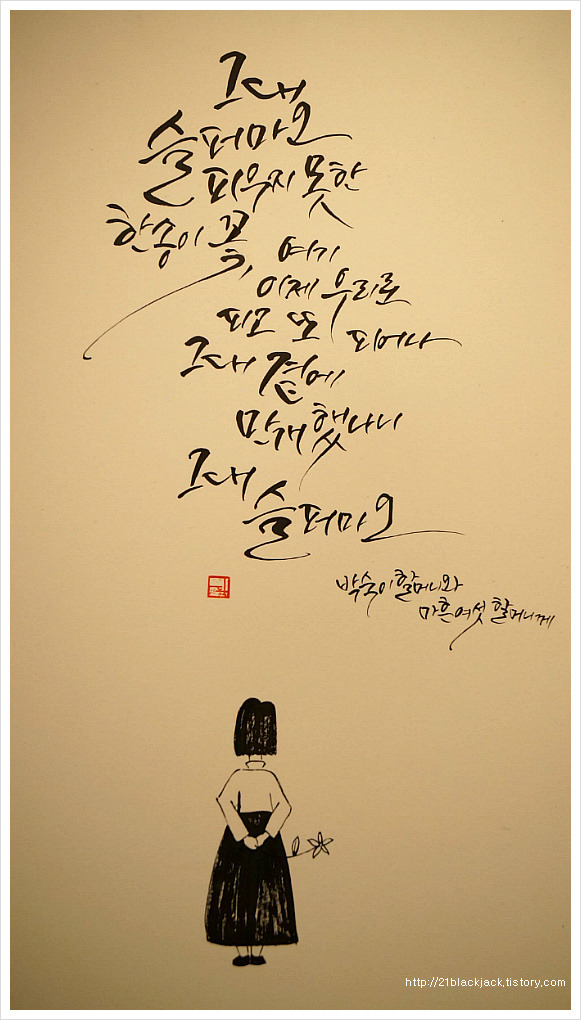 그대
슬퍼마오
피우지 못한
한송이 꽃, 여기
이제 우리로
피고 또 피어나
그대 곁에
만개했나니
그대 슬퍼마오
박숙이할머니와
마흔여섯 할머니께
http://21blackjack.tistory.com